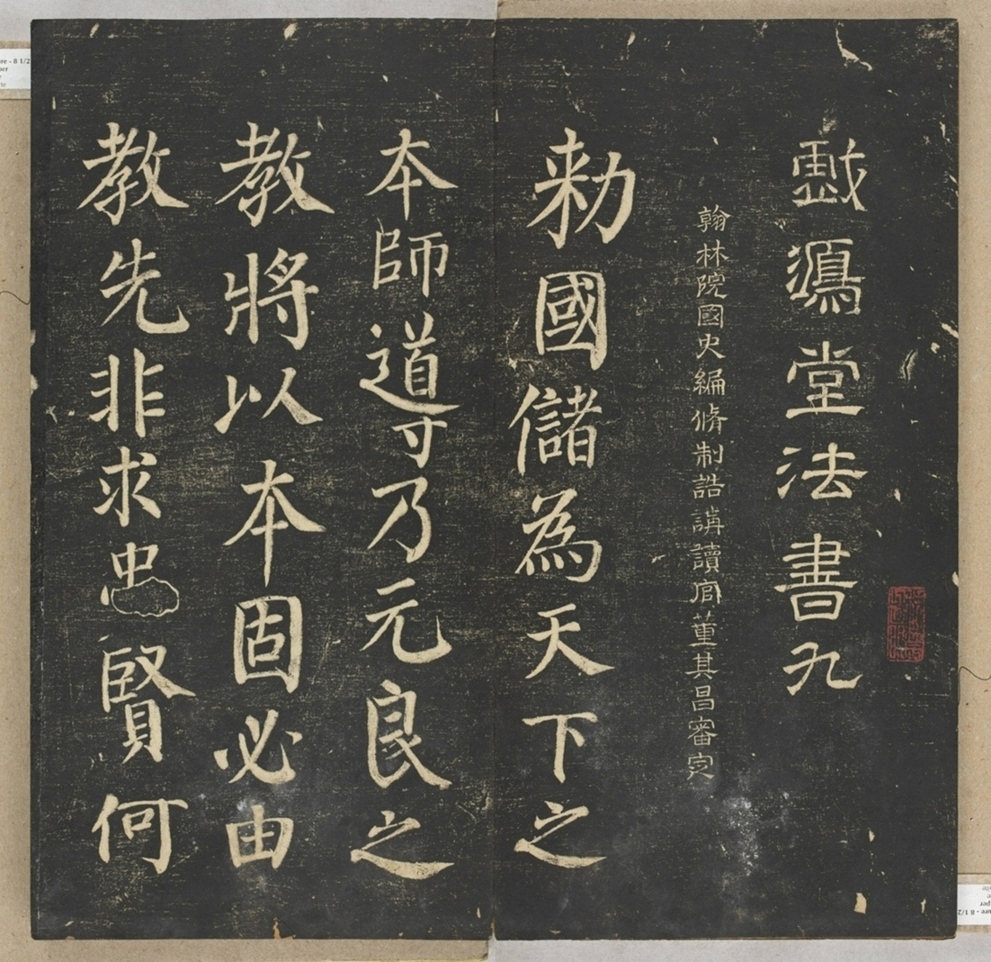 戲鴻堂法書九
翰林院國史編脩制誥講讀官董其昌審定
勑國儲為天下之
本師道寸乃元良之
教將以本固必由
教先非求忠賢何